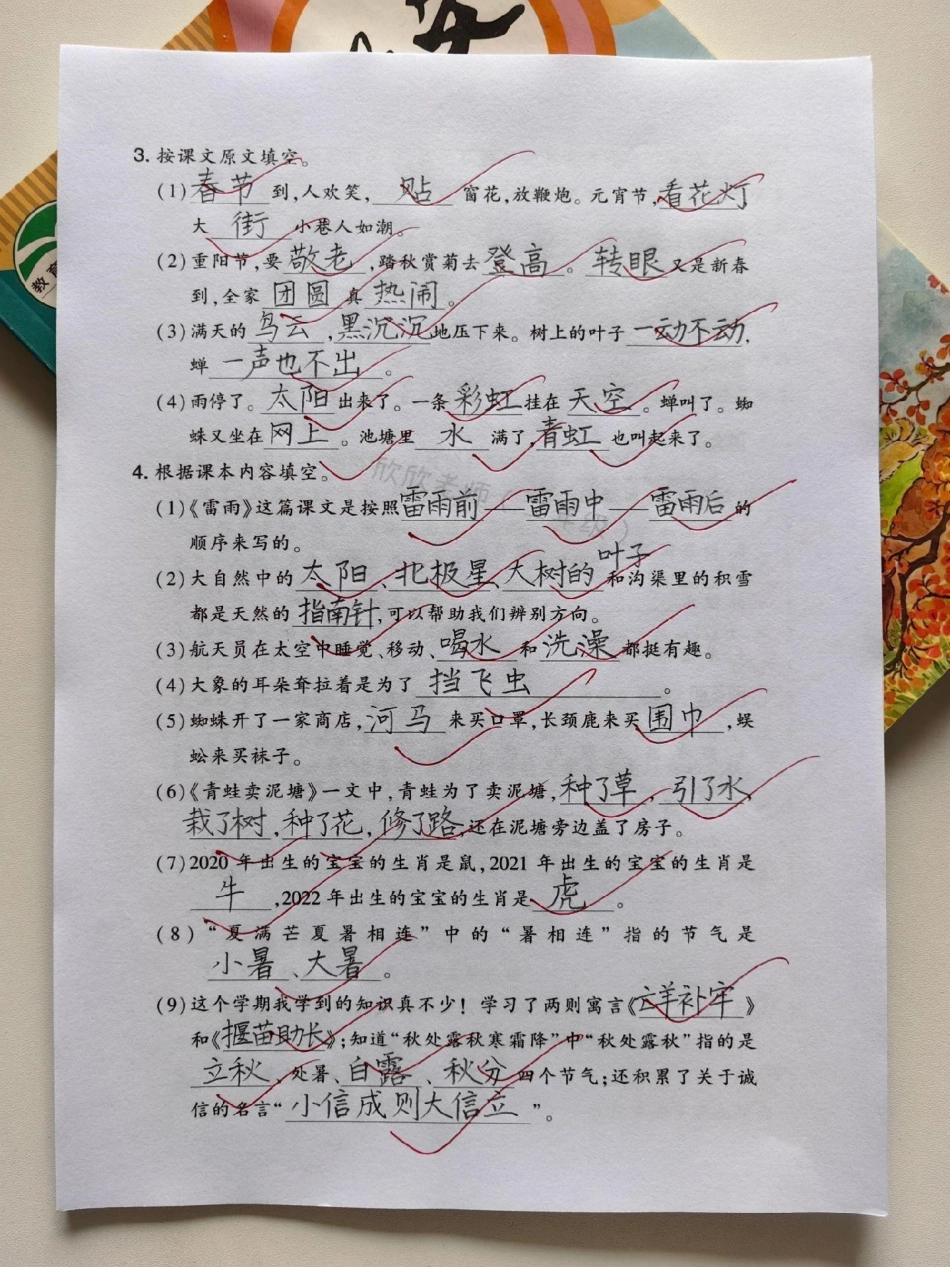 教育
3. 按课文原文填空。
(1)春节到,人欢笑,贴窗花,放鞭炮。元宵节,看花灯
大街小巷人如潮。
(2)重阳节,要敬老,踏秋赏菊去登高。转眼又是新春
到,全家团圆真热闹。
(3)满天的乌云,黑沉沉地压下来。树上的叶子一动不动,
蝉一声也不出。
(4)雨停了。太阳出来了。一条彩虹挂在天空。蝉叫了。蜘
蛛又坐在网上。池塘里水满了,青虹也叫起来了。
4. 根据课本内容填空。
(1)《雷雨》这篇课文是按照雷雨前——雷雨中——雷雨后的
顺序来写的。
(2)大自然中的太阳、北极星、大树的叶子和沟渠里的积雪
都是天然的指南针,可以帮助我们辨别方向。
(3)航天员在太空中睡觉、移动、喝水和洗澡都挺有趣。
(4)大象的耳朵耷拉着是为了挡飞虫。
(5)蜘蛛开了一家商店,河马来买口罩,长颈鹿来买围巾,蜈
蚣来买袜子。
(6)《青蛙卖泥塘》一文中,青蛙为了卖泥塘,种了草,引了水,
栽了树,种了花,修了路,还在泥塘旁边盖了房子。
(7)2020年出生的宝宝的生肖是鼠,2021年出生的宝宝的生肖是
牛,2022年出生的宝宝的生肖是虎。
(8)“夏满芒夏暑相连”中的“暑相连”指的节气是
小暑、大暑。
(9)这个学期我学到的知识真不少!学习了两则寓言《亡羊补牢》
和《揠苗助长》;知道“秋处露秋寒霜降”中“秋处露秋”指的是
立秋、处暑、白露、秋分四个节气;还积累了关于诚
信的名言“小信成则大信立”。
欣欣老师